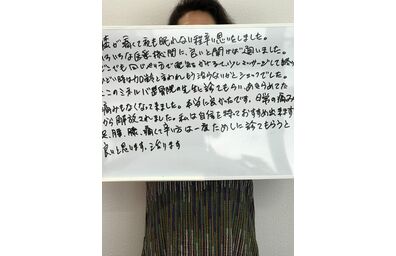 膝が痛くて夜も眠れない程辛い思いをしました。
いろいろな医療機関に、良いと聞けば通いました。
どこでも同じやり方で電気をかけて、マッサージして終り
ひどい時は加齢と言われもう治らないかとショックでした。
ここのミネルバ整骨院の先生に診てもらい、あきらめてた
痛みもなくなってきました。本当に良かったです。日常の痛み
から解放されました。私は自信を持っておすすめ出来ます
足、腰、膝、痛くて辛い方は一度ためしに診てもらうと
良いと思います。治ります